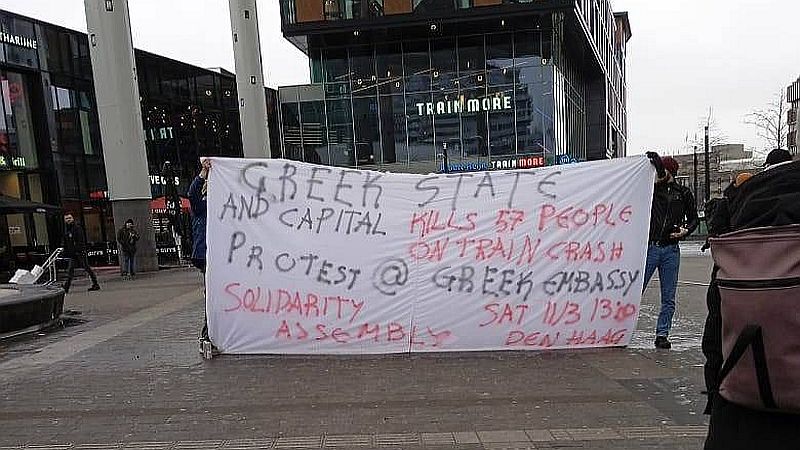 THARIJNE
TRAINMORE
TRAINMORE
GREEK STATE
AND CAPITAL KILLS 57 PEOPLE
ON TRAIN CRASH
PROTEST @ GREEK EMBASSY
SOLIDARITY SAT 11/3 13:00
ASSEMBLY DEN HAAG